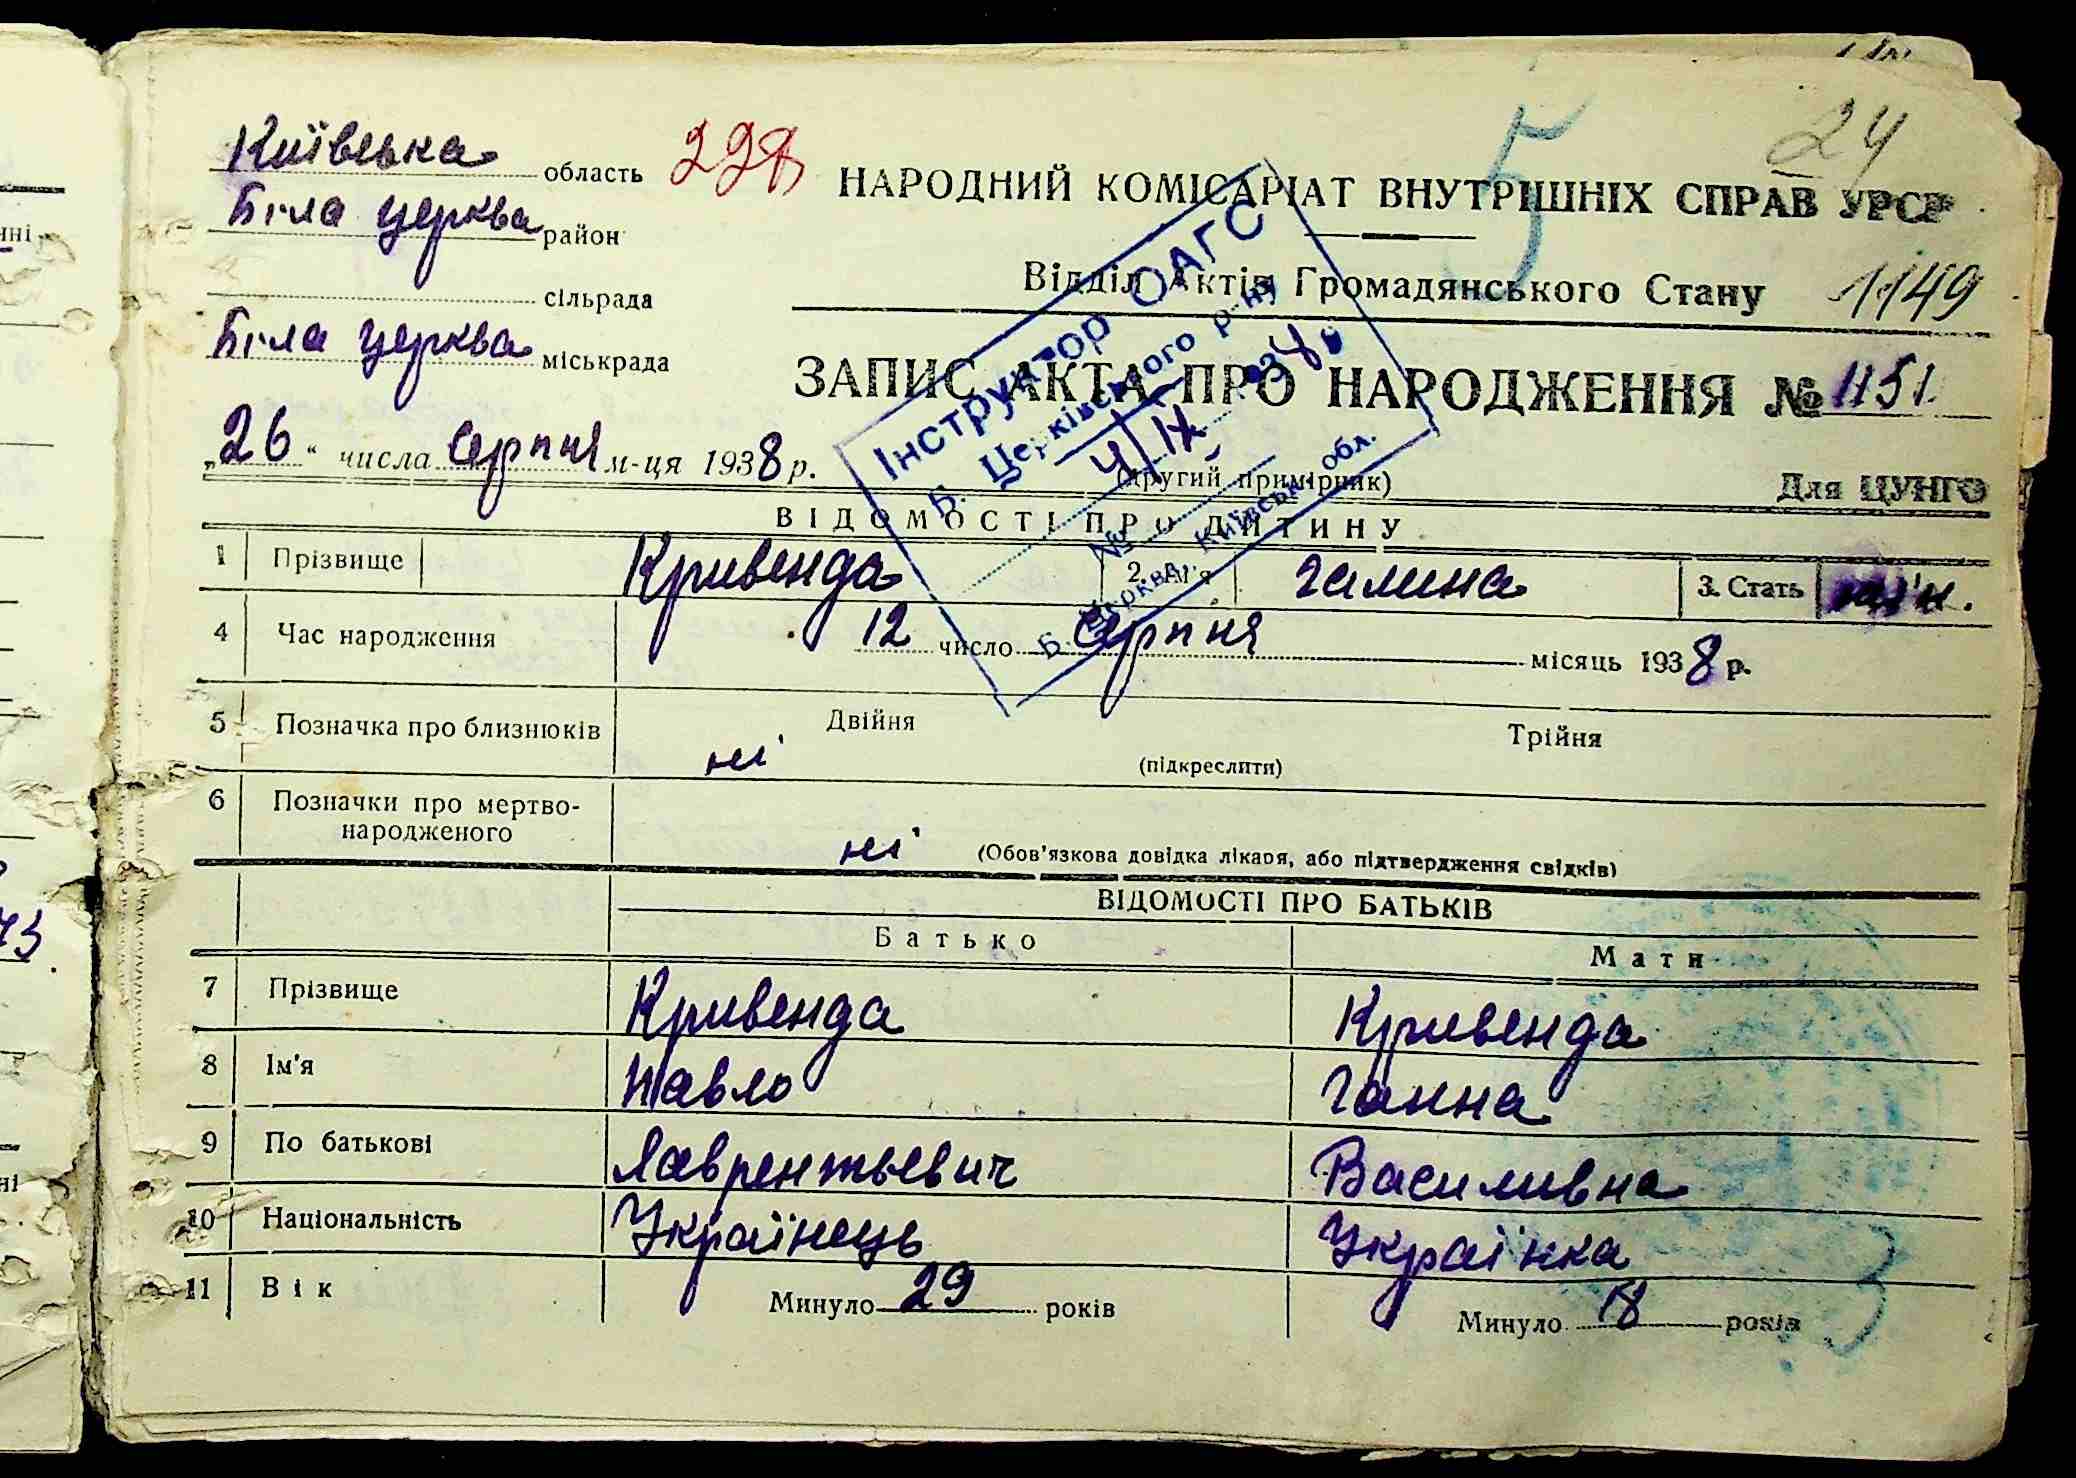 Київська область 228
Біла церква район
сільрада
Біла церква міськрада
"26" числа серпня м-ця 1938 р.
5
24
НАРОДНИЙ КОМІСАРІАТ ВНУТРІШНІХ СПРАВ УРСР
Відділ Актів Громадянського Стану 1149
ЗАПИС АКТА ПРО НАРОДЖЕННЯ № 1151
(другий примірник) Для ЦУНГО
Інструктор ОАГС
Б. Церківського р-ну
4/IX 1938
№
Б. Церква, Київськ. обл.
ВІДОМОСТІ ПРО ДИТИНУ
1 Прізвище Кривенда 2. Ім'я Галина 3. Стать
4 Час народження 12 число серпня місяць 1938 р.
5 Позначка про близнюків ні Двійня Трійня
(підкреслити)
6 Позначки про мертво-
народженого ні (Обов'язкова довідка лікаря, або підтвердження свідків)
ВІДОМОСТІ ПРО БАТЬКІВ
Батько Мати
7 Прізвище Кривенда Кривенда
8 Ім'я Павло Ганна
9 По батькові Лаврентьевич Василивна
10 Національність Українець Українка
11 Вік Минуло 29 років Минуло 18 років
3